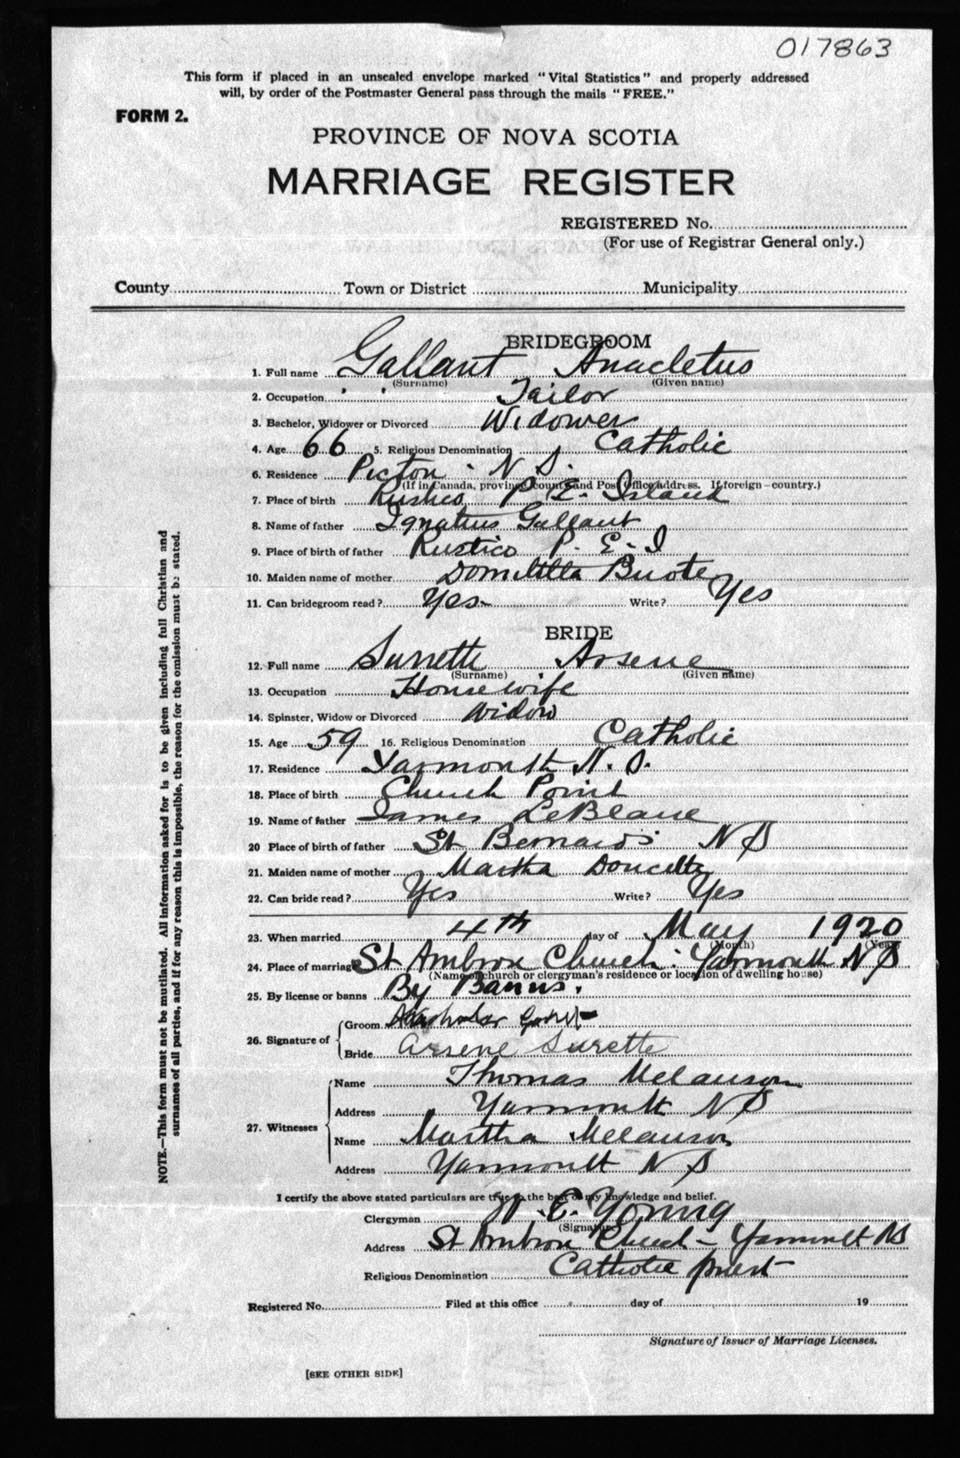 017863
This form if placed in an unsealed envelope marked "Vital Statistics" and properly addressed
will, by order of the Postmaster General pass through the mails "FREE."
FORM 2.
PROVINCE OF NOVA SCOTIA
MARRIAGE REGISTER
REGISTERED No.
(For use of Registrar General only.)
County Town or District Municipality
BRIDEGROOM
1. Full name Gallant Anacletus
(Surname) (Given name)
2. Occupation Tailor
3. Bachelor, Widower or Divorced Widower
4. Age 66 5. Religious Denomination Catholic
6. Residence Picton. N. S.
(If in Canada, province, county and Post Office address. If foreign - country.)
7. Place of birth Rustico P. E. Island
8. Name of father Ignatius Gallant
9. Place of birth of father Rustico P. E. I
10. Maiden name of mother Domitilla Buote
11. Can bridegroom read? Yes Write? Yes
BRIDE
12. Full name Surrette Arsene
(Surname) (Given name)
13. Occupation Housewife
14. Spinster, Widow or Divorced Widow
15. Age 59 16. Religious Denomination Catholic
17. Residence Yarmouth N. S.
18. Place of birth Church Point
19. Name of father James LeBlanc
20 Place of birth of father St. Bernards NS
21. Maiden name of mother Martha Doucette
22. Can bride read? Yes Write? Yes
23. When married 4th day of May 1920
(Month) (Year)
24. Place of marriage St Ambrose Church. Yarmouth N S
(Name of church or clergyman's residence or location of dwelling house)
25. By license or banns By Banns.
26. Signature of
Groom
Bride Arsene Surette
27. Witnesses
Name Thomas Melanson
Address Yarmouth NS
Name Martha Melanson
Address Yarmouth NS
I certify the above stated particulars are true to the best of my knowledge and belief.
Clergyman W. E. Young
(Signature)
Address St Ambrose Church - Yarmouth NS
Religious Denomination Catholic priest
Registered No. Filed at this office day of 19
Signature of Issuer of Marriage Licenses.
[SEE OTHER SIDE]
NOTE.—This form must not be mutilated. All information asked for is to be given including full Christian and
surnames of all parties, and if for any reason this is impossible, the reason for the omission must be stated.